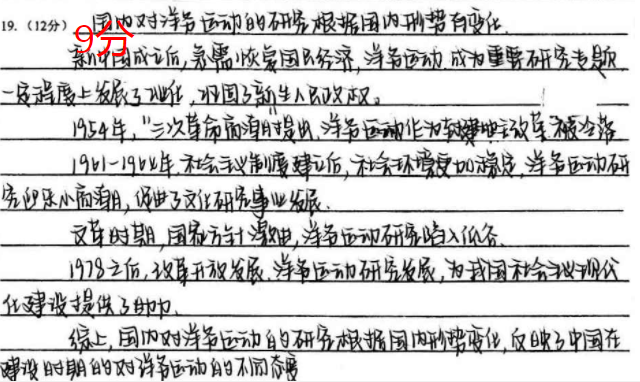 19. (12分) 国内对洋务运动的研究根据国内形势有变化.
9分
新中国成立后,急需恢复国民经济,洋务运动成为重要研究专题
一定程度上发展了工业化,巩固了新生人民政权。
1954年,"三次革命高潮"提出,洋务运动作为封建地主改革被冷落
1961-1966年,社会主义制度建立后,社会环境更加稳定,洋务运动研
究迎来小高潮,促进了文化研究事业发展.
文革时期,国家方针激进,洋务运动研究陷入低谷.
1978之后,改革开放发展.洋务运动研究发展,为我国社会主义现代
化建设提供了助力.
综上,国内对洋务运动的研究根据国内形势变化,反映了中国在
建设时期的对洋务运动的不同态度